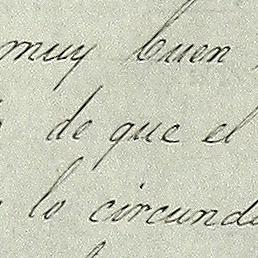 muy buen
de que el
lo circunde